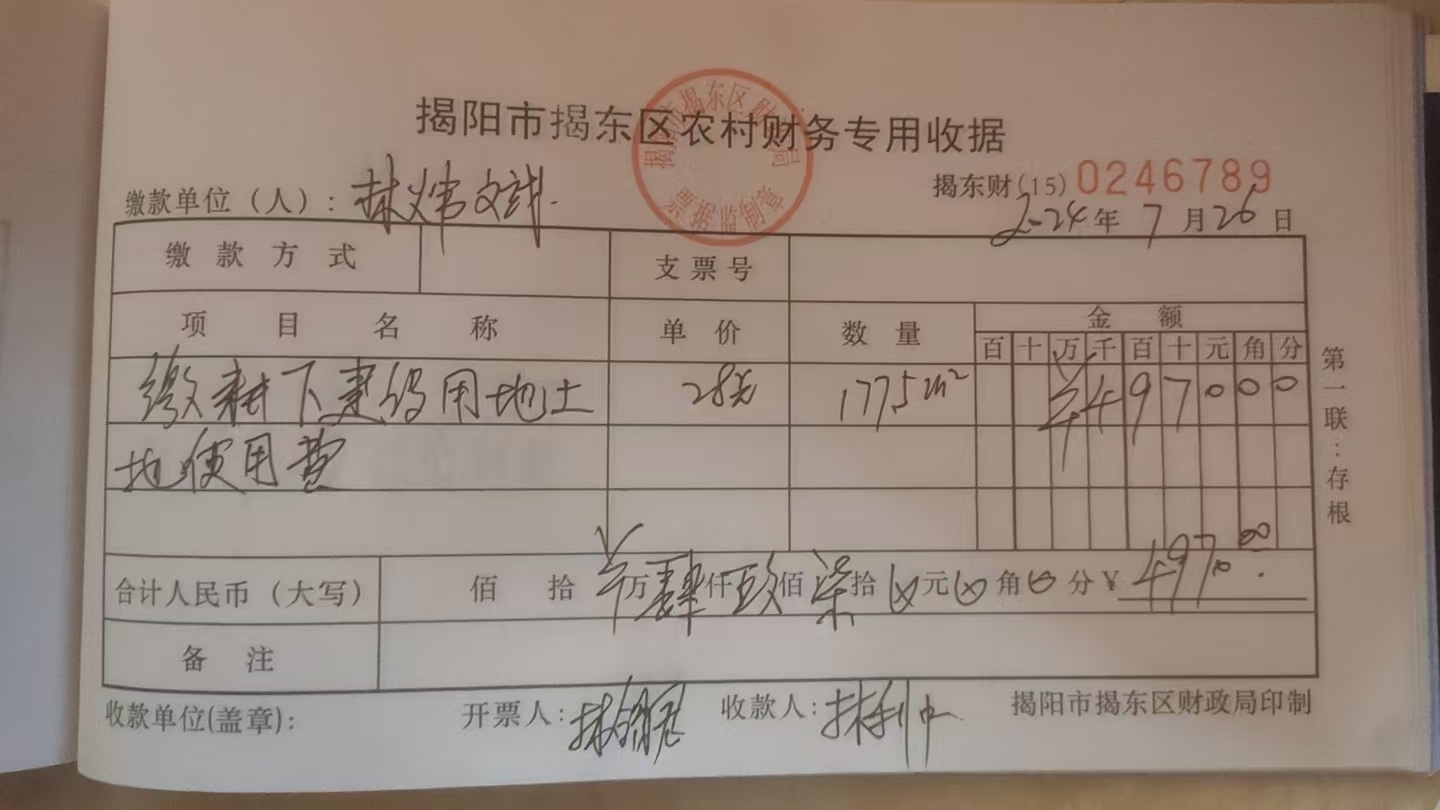 揭阳市揭东区农村财务专用收据
揭阳市揭东区财政局
票据监制章
揭东财(15) 0246789
缴款单位（人）: 林炜文
2024年7月26日
缴款方式 支票号
项目名称 单价 数量 金额
百 十 万 千 百 十 元 角 分
下建设用地土 28元 1775m² ¥497000
地使用费
合计人民币（大写） 佰 拾 万肆仟玖佰柒拾0元0角0分￥ 4970.00
备注
收款单位(盖章):
开票人:
收款人:林利中
揭阳市揭东区财政局印制
第一联:存根